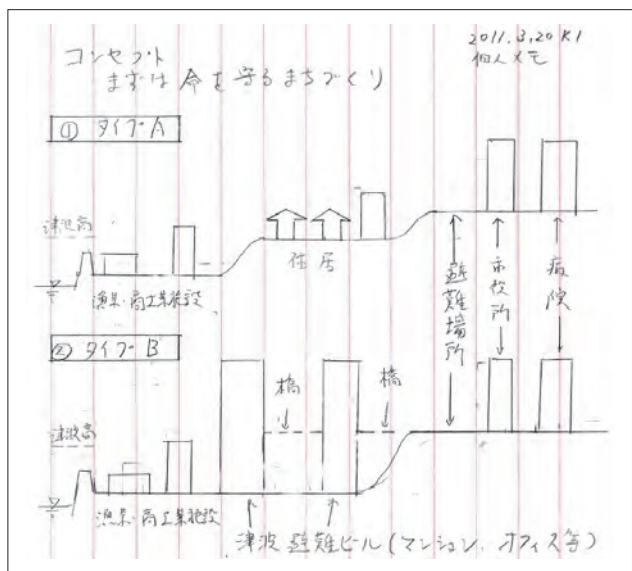 2011.3.20 KI
個人メモ
コンセプト
まずは命を守るまちづくり
① タイプA
津波高
漁業・商工業施設
住居
避難場所
市役所
病院
② タイプB
橋
橋
津波高
漁業・商工業施設
津波避難ビル(マンション、オフィス等)